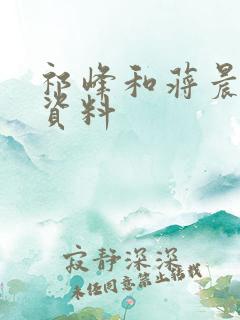 祁峰和蒋晨
資料
寂静深深
未经同意禁止转载